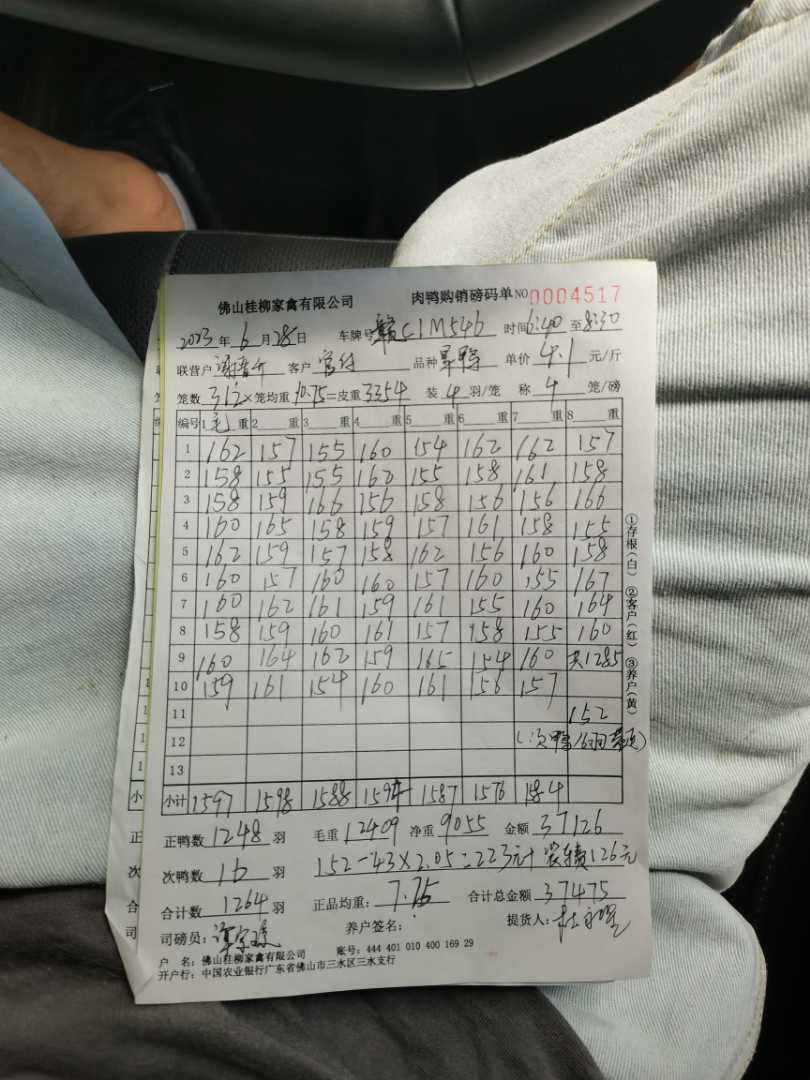 佛山桂柳家禽有限公司 肉鸭购销磅码单 NO 0004517
2023年6月28日 车牌号 赣C1M546 时间6:40至8:30
联营户 客户 品种 单价 4.1 元/斤
笼数 312×笼均重 10.75=皮重 3354 装 4 羽/笼 称 4 笼/磅
编号 1毛重 2重 3重 4重 5重 6重 7重 8重
1 162 157 155 160 154 162 162 157
2 158 155 155 162 155 158 161 158
3 158 159 166 156 158 156 156 166
4 160 165 158 159 157 161 158 155
5 162 159 157 158 162 156 160 158
6 160 157 160 160 157 160 155 167
7 160 162 161 159 161 155 160 164
8 158 159 160 161 157 158 155 160
9 160 164 162 159 165 154 160 共1285
10 159 161 154 160 161 156 157
11 152
12 (次鸭16羽
13
小计 1597 1598 1588 1594 1587 1576 1584
正鸭数 1248 羽 毛重 12409 净重 9055 金额 37126
次鸭数 16 羽 152-43×2.05=223元+装车费126元
合计数 1264 羽 正品均重: 7.25 合计总金额 37475
司磅员: 养户签名: 提货人:
户 名: 佛山桂柳家禽有限公司 账号: 444 401 010 400 169 29
开户行: 中国农业银行广东省佛山市三水区三水支行
①存根(白) ②客户(红) ③养户(黄)